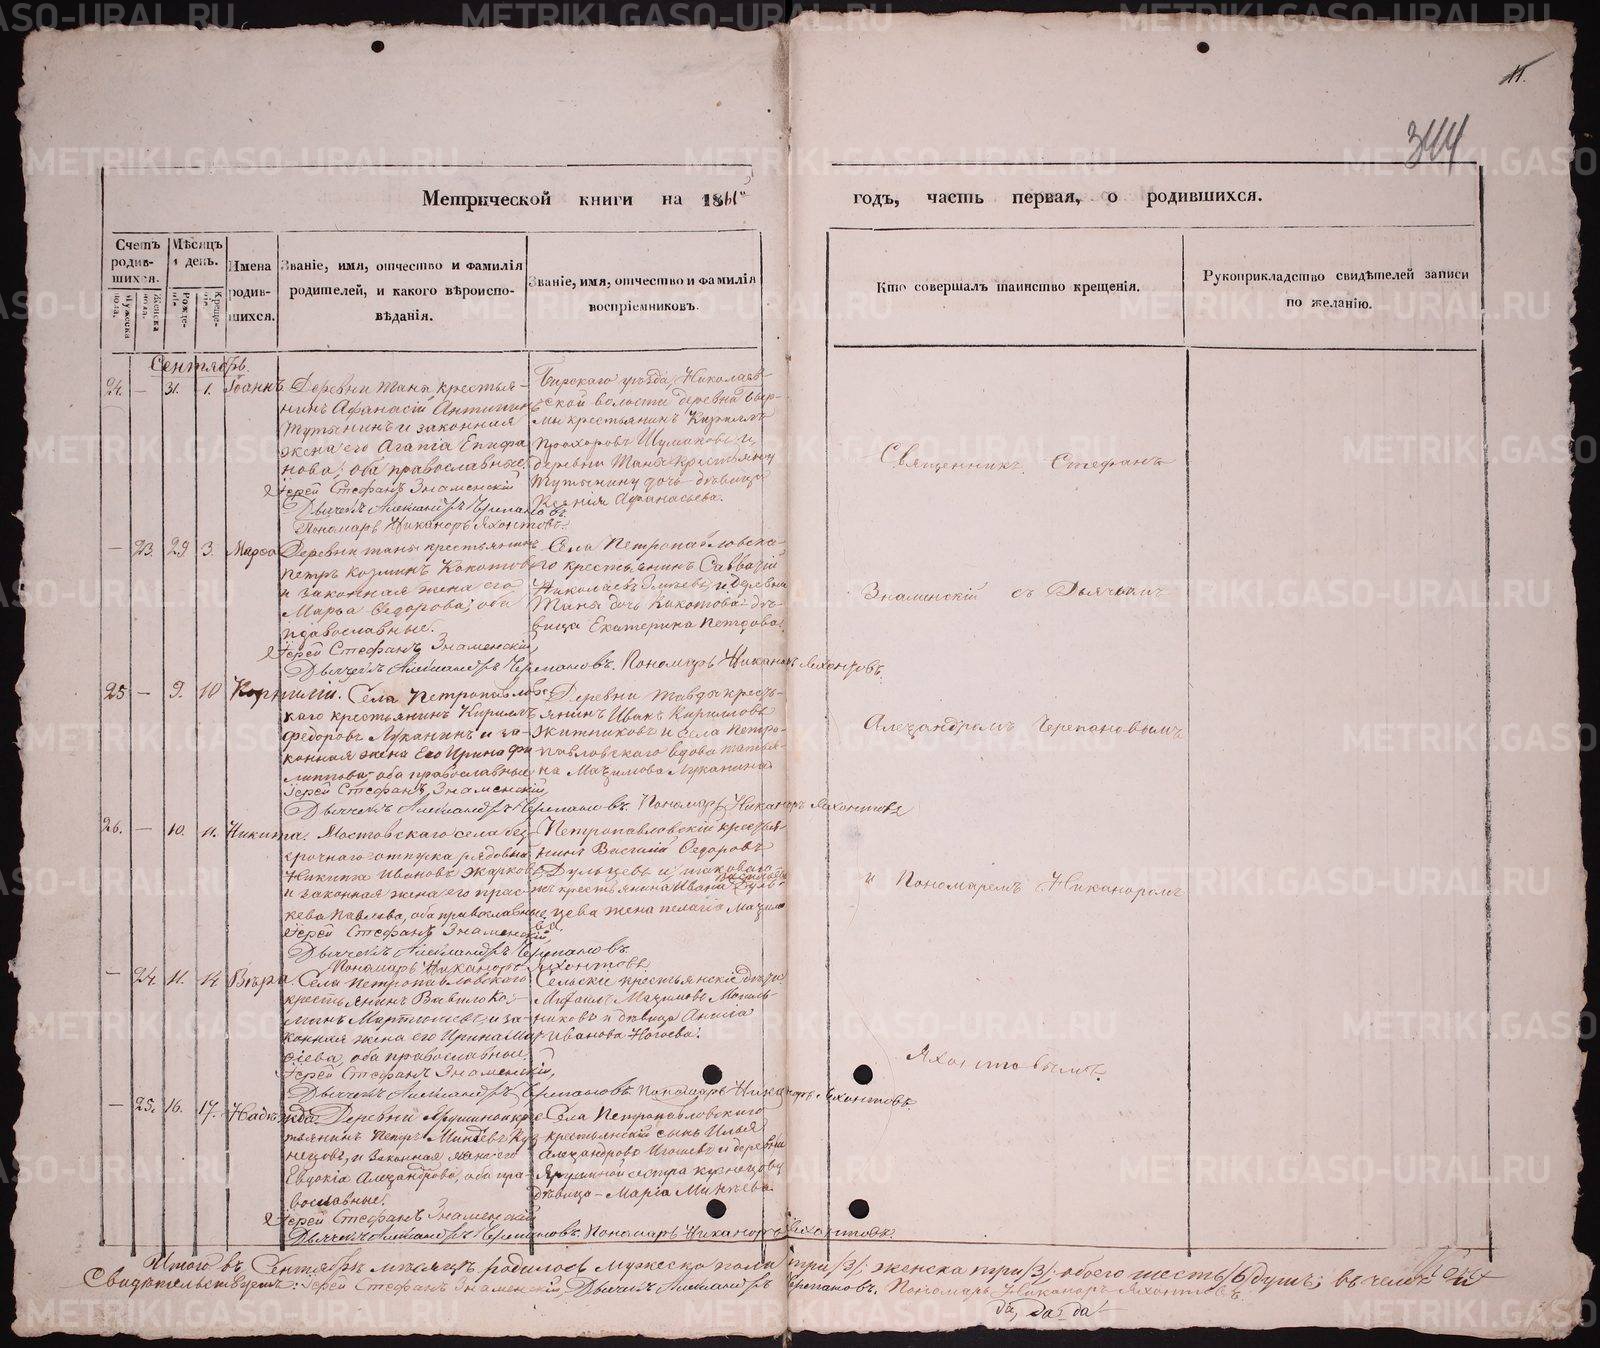 11.
344
Метрической книги на 18
годъ, часть первая, о родившихся.
Счетъ родив-шихся.
Мѣсяцъ и день.
Имена родив-шихся.
Званіе, имя, отчество и фамилія родителей, и какого вѣроиспо-вѣданія.
Званіе, имя, отчество и фамилія воспріемниковъ.
Кто совершалъ таинство крещенія.
Рукоприкладство свидѣтелей записи по желанію.
Мужеска пола.
Женска пола.
Рожде-нія
Креще-нія
Сентябрь.
24. — 31. 1. Іоаннъ
Деревни Таны крестья-
нинъ Афанасій Антипинъ
Тутынинъ и законная
жена его Агапія Епифа
нова; оба православные.
Іерей Стефанъ Знаменскій
Дьячекъ Александръ Черепановъ.
Пономарь Никаноръ Яхонтовъ.
Бирскаго уѣзда, Николаев-
ской волости деревни
крестьянинъ Кириллъ
Прохоровъ Шумиковъ и
деревни Таны крестьянину
Тутынину дочь дѣвица
Ксенія Афанасьева.
— 23. 29 3. Марѳа
Деревни таны крестьянинъ
петръ козминъ Кокотовъ
и законная жена его
Марья Ѳедорова; оба
православные.
Іерей Стефанъ Знаменскій
Дьячекъ Александръ Черепановъ. Пономарь Никаноръ Яхонтовъ.
Села Петропавловска-
го крестьянинъ Савватій
Николаевъ и деревни
Таны дочь Кокотова дѣ-
вица Екатерина Петрова.
25 — 9. 10 Корнилій.
Села Петропавловс-
каго крестьянинъ Кириллъ
федоровъ Луканинъ и за-
конная жена Его Ирина фи
липпова оба православные
Іерей Стефанъ Знаменскій
Дьячекъ Александръ Черепановъ. Пономарь Никаноръ Яхонтовъ
Деревни Тавды кресть-
янинъ Иванъ Кирилловъ
Житниковъ и Села Петро-
павловскаго вдова татья-
на Маѯимова Луканина
26. — 10. 11. Никита.
Мостовскаго села без-
срочнаго отпуска рядовый
Никита Ивановъ Жарковъ
и законная жена его прас-
кева Павлова, оба православные.
Іерей Стефанъ Знаменскій
Дьячекъ Александръ Черепановъ.
Пономарь Никаноръ Яхонтовъ.
Петропавловскій крестья-
нинъ Василій Ѳедоровъ
Дульцевъ и таковаго
жъ крестьянина Ивана Дуль-
цева жена пелагія Маѯимо
ва.
— 24. 11. 14 Вѣра.
Села Петропавловскаго
крестьянинъ Вавило Коз-
минъ Мартюшевъ, и за-
конная жена его Ирина
сіева, оба православные.
Іерей Стефанъ Знаменскій,
Дьячекъ Александръ Черепановъ. Пономарь Никаноръ Яхонтовъ.
Сельски крестьянскіе дѣти:
Михаилъ Маѯимовъ Могиль-
никовъ и дѣвица Анисія
Иванова Ногоева.
— 25. 16. 17. Надѣжда.
Деревни Ярушиной крес-
тьянинъ Петръ Минѣевъ Куз-
нецовъ, и законная жена его
Евдокія Алеѯандрова, оба пра-
вославные.
Іерей Стефанъ Знаменскій
Дьячекъ Александръ Черепановъ. Пономарь Никаноръ Яхонтовъ.
Села Петропавловскаго
крестьянскій сынъ Илья
Алеѯандровъ Игошевъ и деревни
Ярушиной сестра кузнецову
дѣвица Марія Минѣева.
Священникъ Стефанъ
Знаменскій съ Дьячкомъ
Алеѯандромъ Черепановымъ
и Пономаремъ Никаноромъ
Яхонтовымъ.
Итого въ Сентябрѣ мѣсяцѣ родилось мужеска пола три /3/; женска три /3/; обоего шесть /6/ душъ; въ чемъ и
Свидѣтельствуетъ: Іерей Стефанъ Знаменскій, Дьячекъ Александръ Черепановъ. Пономарь Никаноръ Яхонтовъ.
METRIKI.GASO-URAL.RU